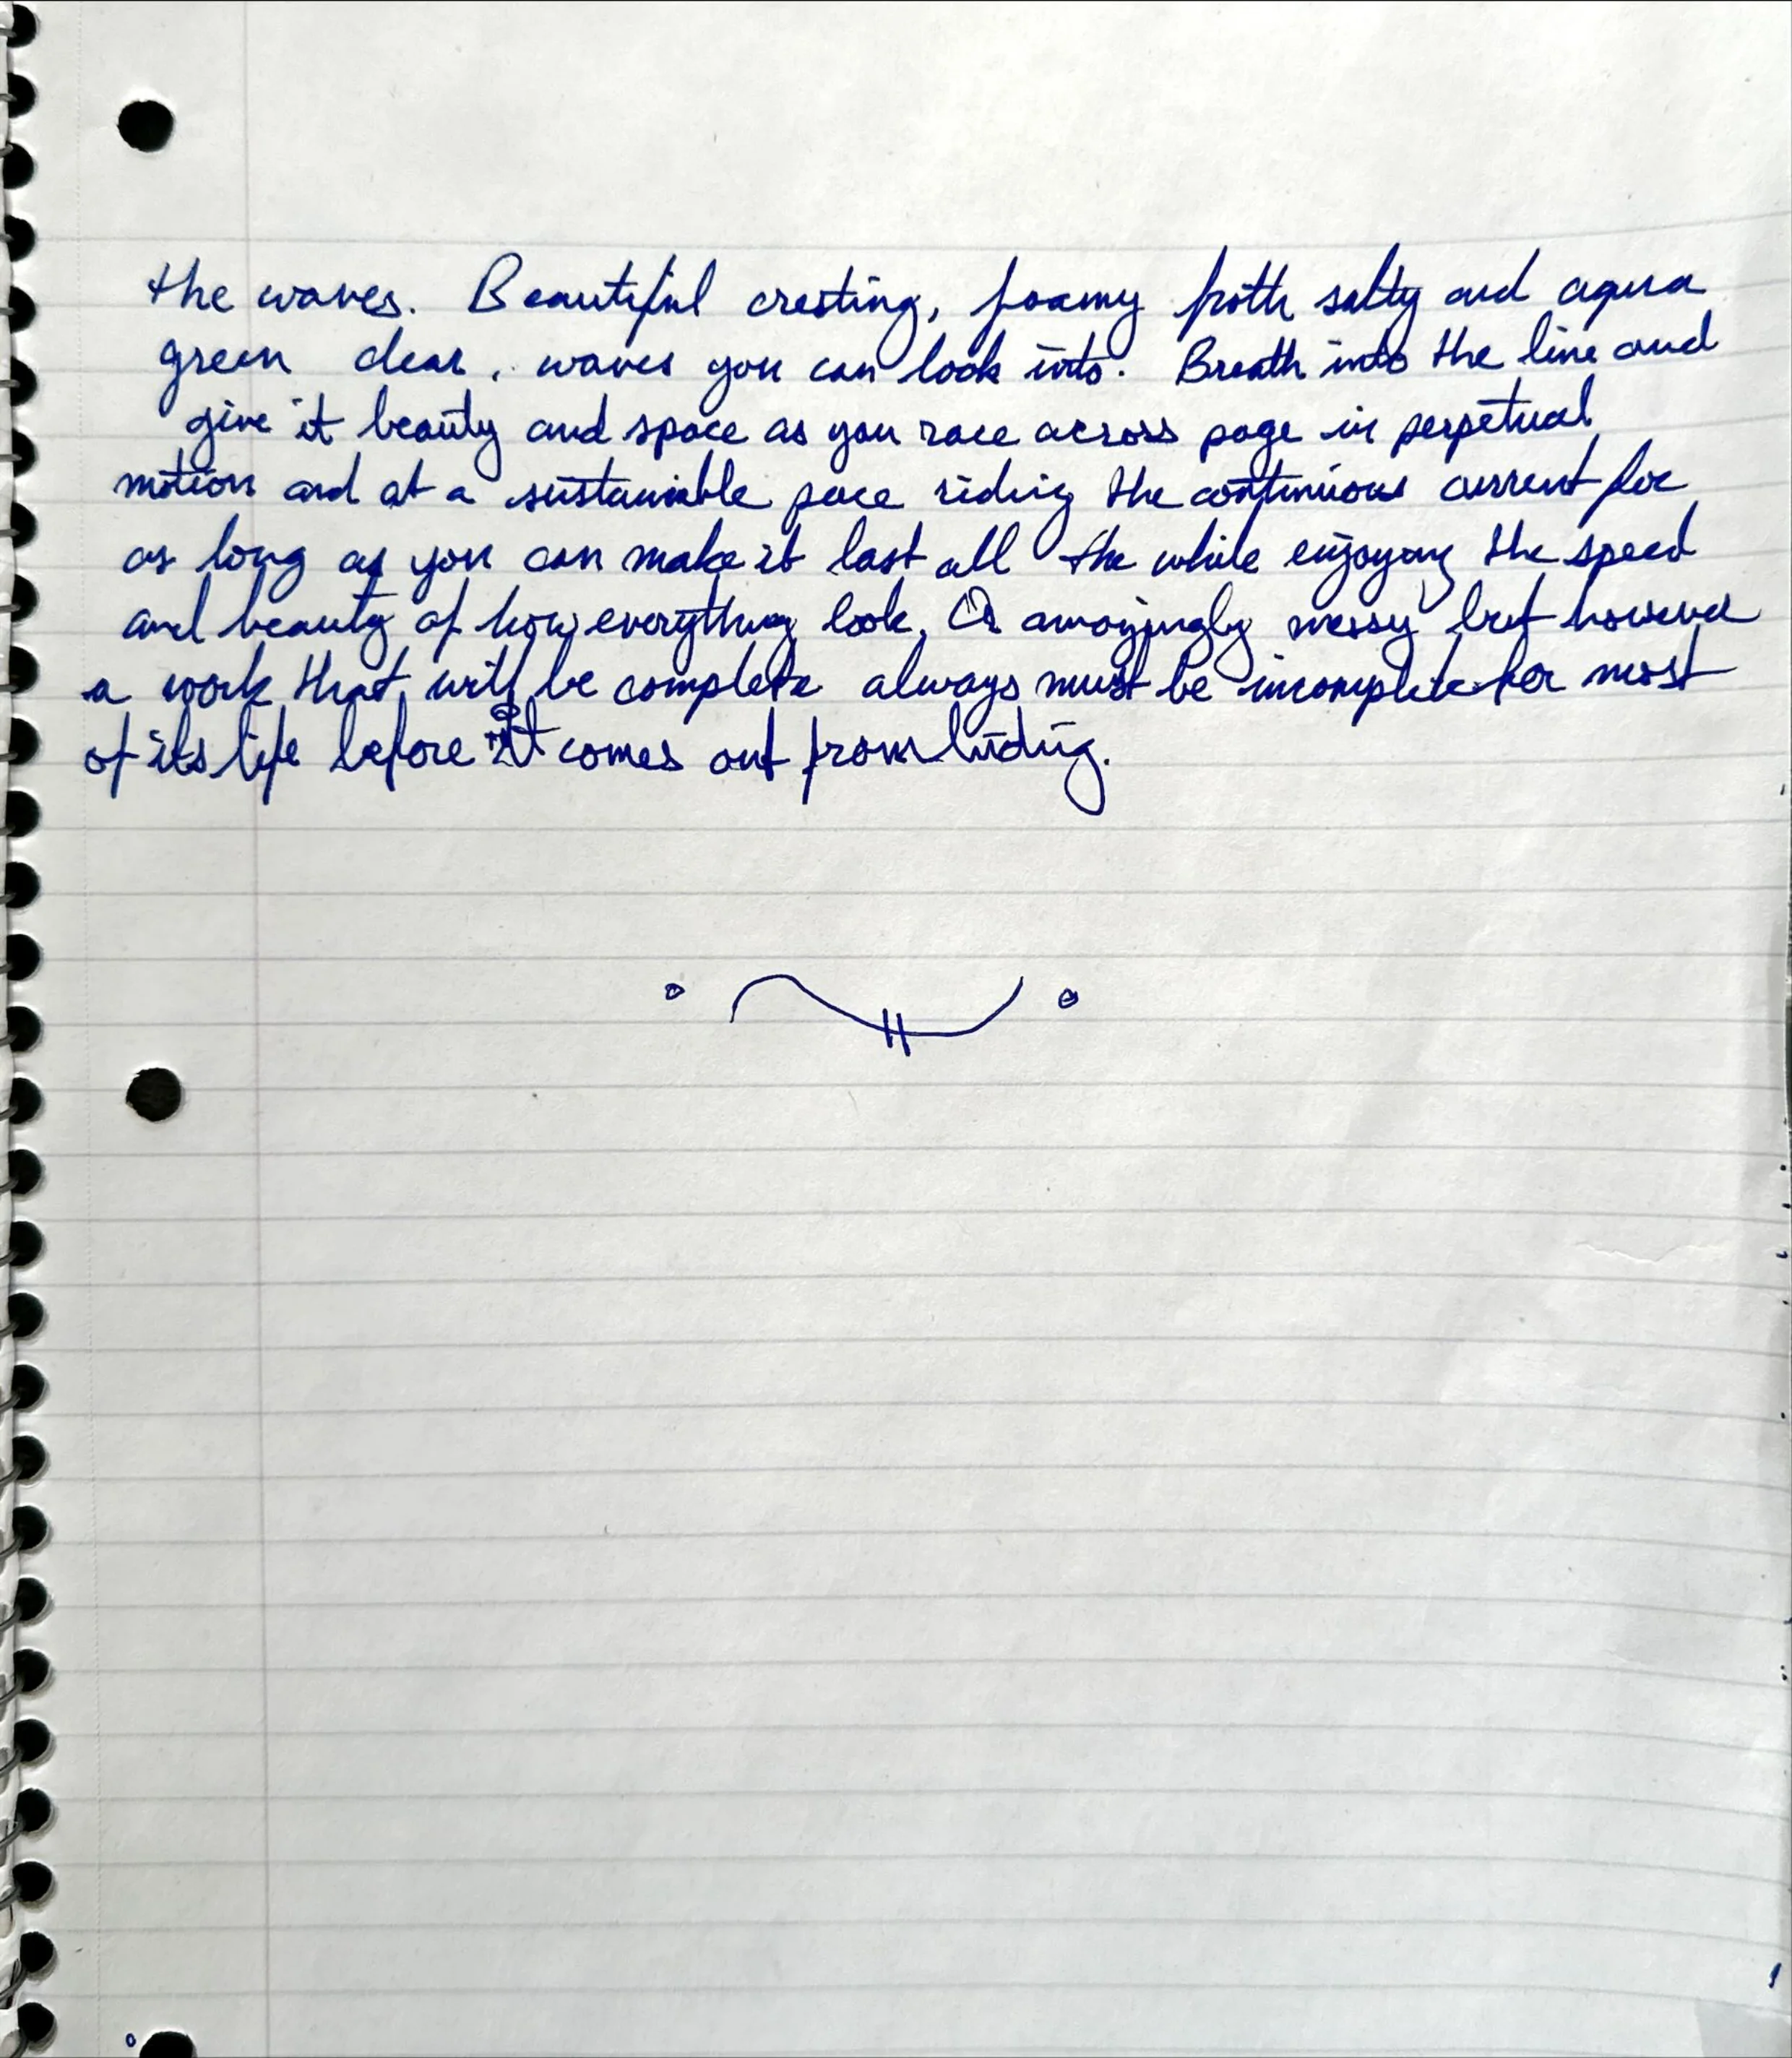 the waves. Beautiful cresting, foamy froth salty and aqua
green clear, waves you can look into. Breath into the line and
give it beauty and space as you race across page in perpetual
motion and at a sustainable pace riding the continuous current for
as long as you can make it last all the while enjoying the speed
and beauty of how everything look. Or annoyingly messy but however
a work that will be complete always must be incomplete for most
of its life before it comes out from hiding.